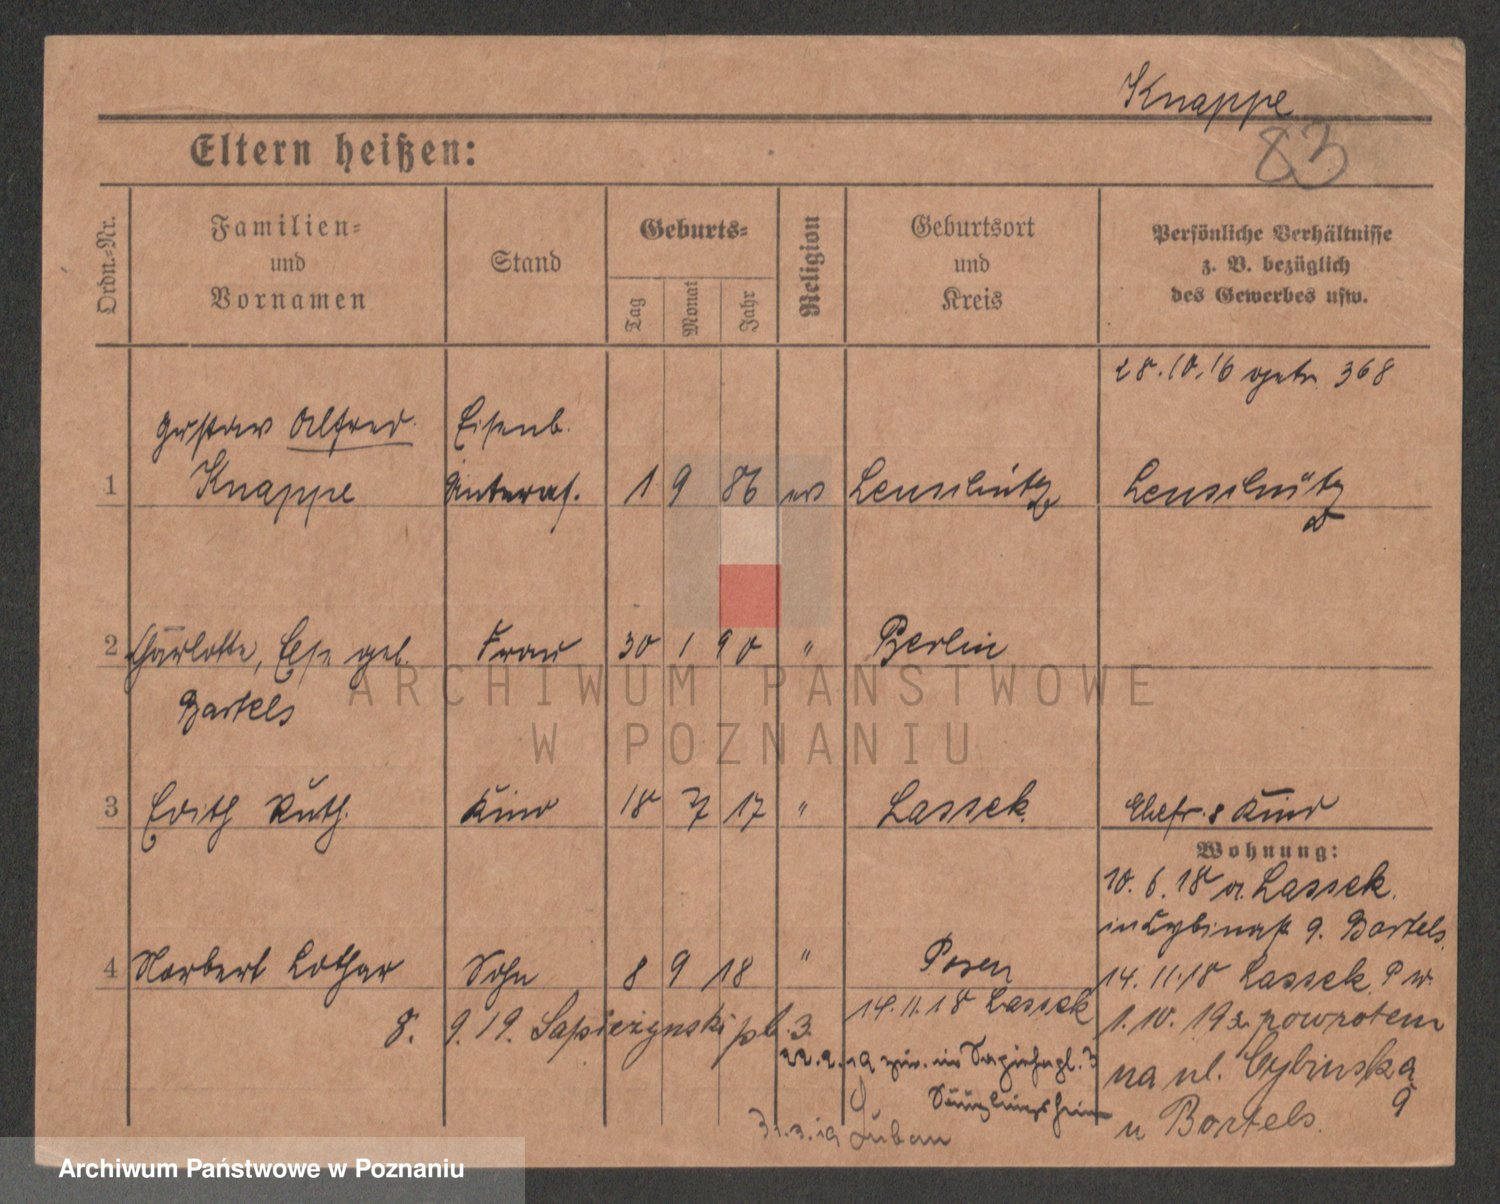 Knappe
83
Eltern heißen:
Ordn.-Nr.
Familien-
und
Vornamen
Stand
Geburts-
Tag
Monat
Jahr
Religion
Geburtsort
und
Kreis
Persönliche Verhältnisse
z. B. bezüglich
des Gewerbes usw.
28.10.16 getr. 368
Gustav Alfred Eisenb.
1 Knappe 1 9 86 ev Leuschütz Leuschütz
2 Charlotte, Else geb. Frau 30 1 90 " Berlin
Bartels
ARCHIWUM PAŃSTWOWE
W POZNANIU
3 Edith Ruth. Kind 18 7 17 " Lassek Ehefr. & Kind
Wohnung:
10. 6. 18 a. Lassek.
9. Bartels.
4 Norbert Lothar Sohn 8 9 18 " Posen
14. 11. 18 Lassek. P. W.
14.11.18 Lassek
8. 9. 19. Sapieżynski pl. 3.
1. 10. 19 powrotem
22.2.19 Sapiehapl. 3
na ul. Cybinska
9
Säuglingsheim
u Bartels.
31.3.19 Luban
Archiwum Państwowe w Poznaniu